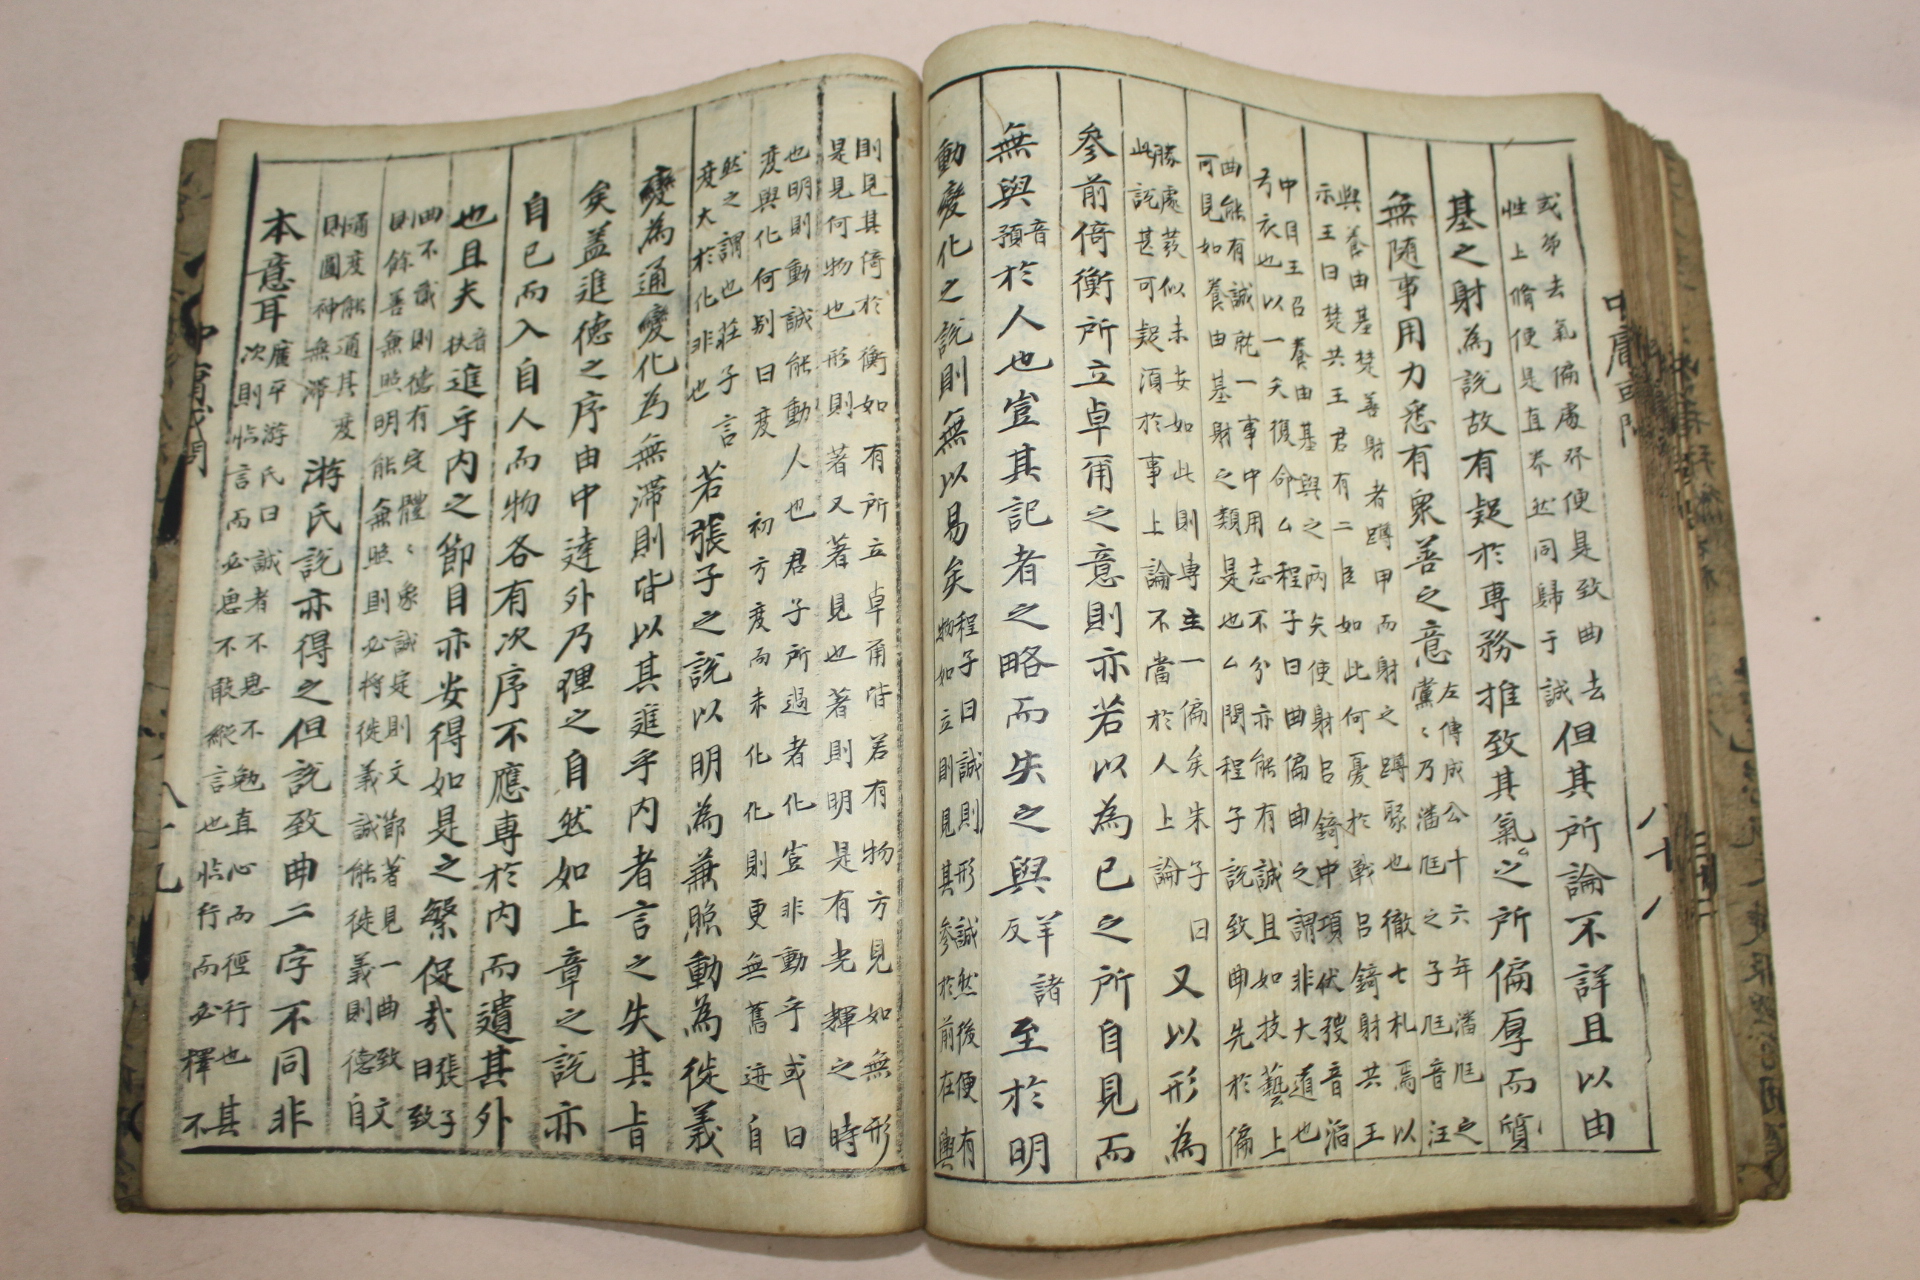 或前去氣偏處推便是致曲去
性上脩便是直養然同歸于誠
但其所論不詳且以由
基之射為說故有疑於專務推致其氣之所偏厚而質
無隨事用力悉有衆善之意
左傳成公十六年潘尫之
黨乃潘尫之子尫音汪
與養由基楚善射者蹲甲而射之蹲聚也徹七札焉以
示王曰楚共王君有二臣如此何憂於戰呂錡射共王
中目王召養由基與之兩矢使射呂錡中項伏弢音滔
弓衣也以一矢復命程子曰曲偏曲之謂非大道也
曲能有誠就一事中用志不分亦能有誠且如技藝上
可見如養由基射之類是也問程子說致曲先於偏
勝處發似未安如此則專主一偏矣朱子曰
此說甚可疑須於事上論不當於人上論
又以形為
參前倚衡所立卓爾之意則亦若以為已之所自見而
無與音預於人也豈其記者之略而失之與羊諸反至於明
動變化之說則無以易矣
程子曰誠則形誠然後便有
物如立則見其參於前在輿
則見其倚於衡如有所立卓爾皆若有物方見如無形
是見何物也形則著又著見也著則明是有光輝之時
也明則動誠能動人也君子所過者化豈非動乎或曰
變與化何別曰變初方變而未化化則更無舊迹自
然之謂也莊子言
變大於化非也
若張子之說以明為兼照動為徙義
變為通變化為無滯則皆以其進乎內者言之失其旨
矣盖進德之序由中達外乃理之自然如上章之說亦
自已而入自人而物各有次序不應專於內而遺其外
也且夫音扶進乎內之節目亦安得如是之繁促哉
張子
曰致
曲不貳則德有定體體象誠定則文節著見一曲致文
則餘善兼照明能兼照則必將徙義誠能徙義則德自
通變能通其變
則圓神無滯
游氏說亦得之但說致曲二字不同非
本意耳
廣平游氏曰誠者不思不勉直心而徑行也其
次則臨言而必思不敢縱言也臨行而必擇不
中庸或問
八十八
八十九